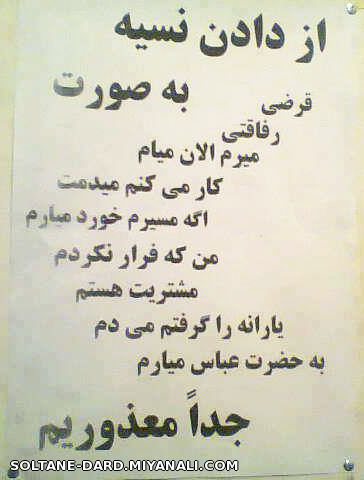 از دادن نسیه
به صورت
قرضی
رفاقتی
میرم الان میام
کار می کنم میدمت
اگه مسیرم خورد میارم
من که فرار نکردم
مشتریت هستم
یارانه را گرفتم می دم
به حضرت عباس میارم
جداً معذوریم
SOLTANE-DARD.MIYANALI.COM